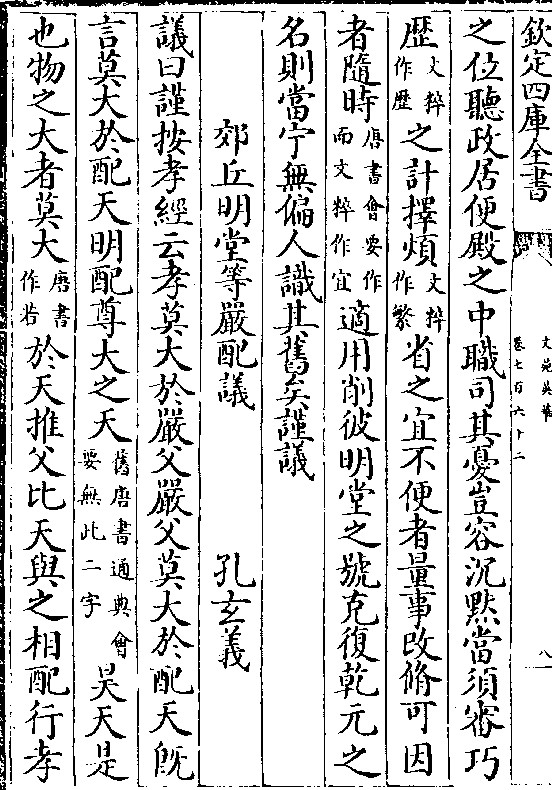 欽定四庫全書
文苑英華
卷七百六十二
八
之位聽政居便殿之中職司其憂豈容沉默當須審巧
歴文粹作歷之計擇煩文粹作繁省之宜不便者量事改脩可因
者隨時唐書會要作而文粹作宜適用削彼明堂之號克復乾元之
名則當宁無偏人識其舊矣謹議
郊丘明堂等嚴配議 孔玄義
議曰謹按孝經云孝莫大於嚴父嚴父莫大於配天旣
言莫大於配天明配尊大之天舊唐書通典會要無此二字昊天是
也物之大者莫大唐書作若於天推父比天與之相配行孝